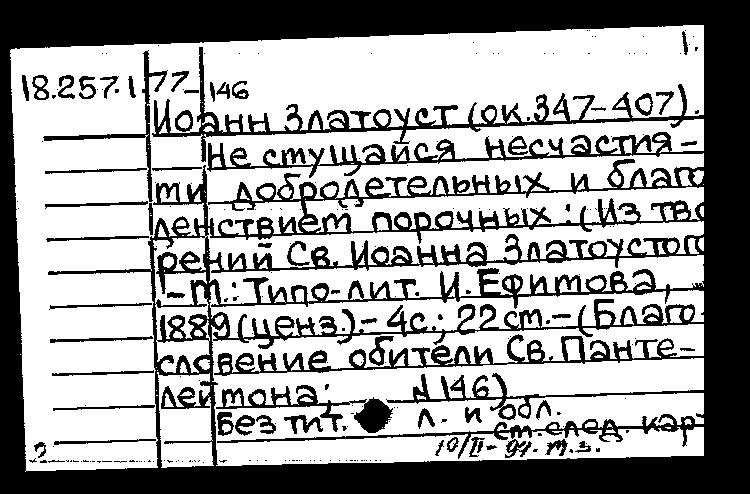 1.
18.257.1.77-146
Иоанн Златоуст (ок.347-407).
Не смущайся несчастия-
ми добродетельных и благо
денствием порочных: (Из тво
рений Св. Иоанна Златоустого
!-М.: Типо-лит. И. Ефимова,
1889 (ценз.).- 4с.; 22см.-(Благо-
словение обители Св. Панте-
леймона; N146)
Без тит. л. и обл.
см.след. кар
10/II- 94. м.з.
2